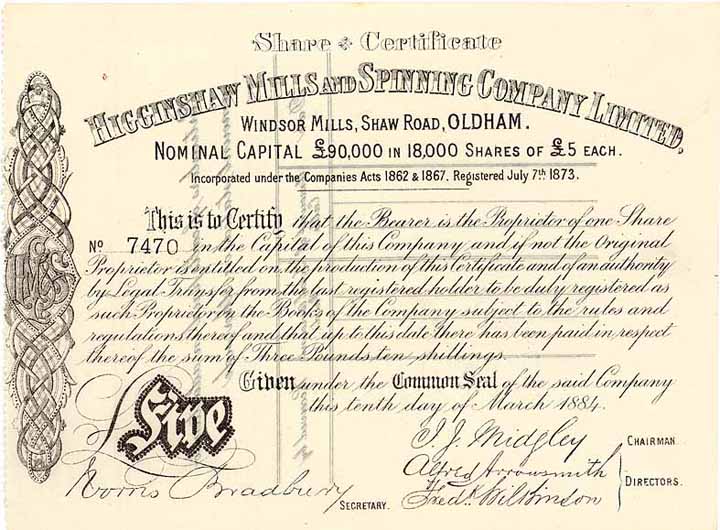 Share Certificate
HIGGINSHAW MILLS AND SPINNING COMPANY LIMITED,
WINDSOR MILLS, SHAW ROAD, OLDHAM.
NOMINAL CAPITAL £90,000 IN 18,000 SHARES OF £5 EACH.
Incorporated under the Companies Acts 1862 & 1867. Registered July 7th 1873.
This is to Certify that the Bearer is the Proprietor of one Share
No 7470 in the Capital of this Company and if not the Original
Proprietor is entitled on the production of this Certificate and of an authority
by Legal Transfer from the last registered holder to be duly registered as
such Proprietor on the Books of the Company subject to the rules and
regulations thereof and that up to this date there has been paid in respect
thereof the sum of Three Pounds ten shillings.
Given under the Common Seal of the said Company
this tenth day of March 1884.
£Five
J. J. Midgley CHAIRMAN
Alfred Arrowsmith
Fredk Wilkinson DIRECTORS.
Norris Bradbury SECRETARY.